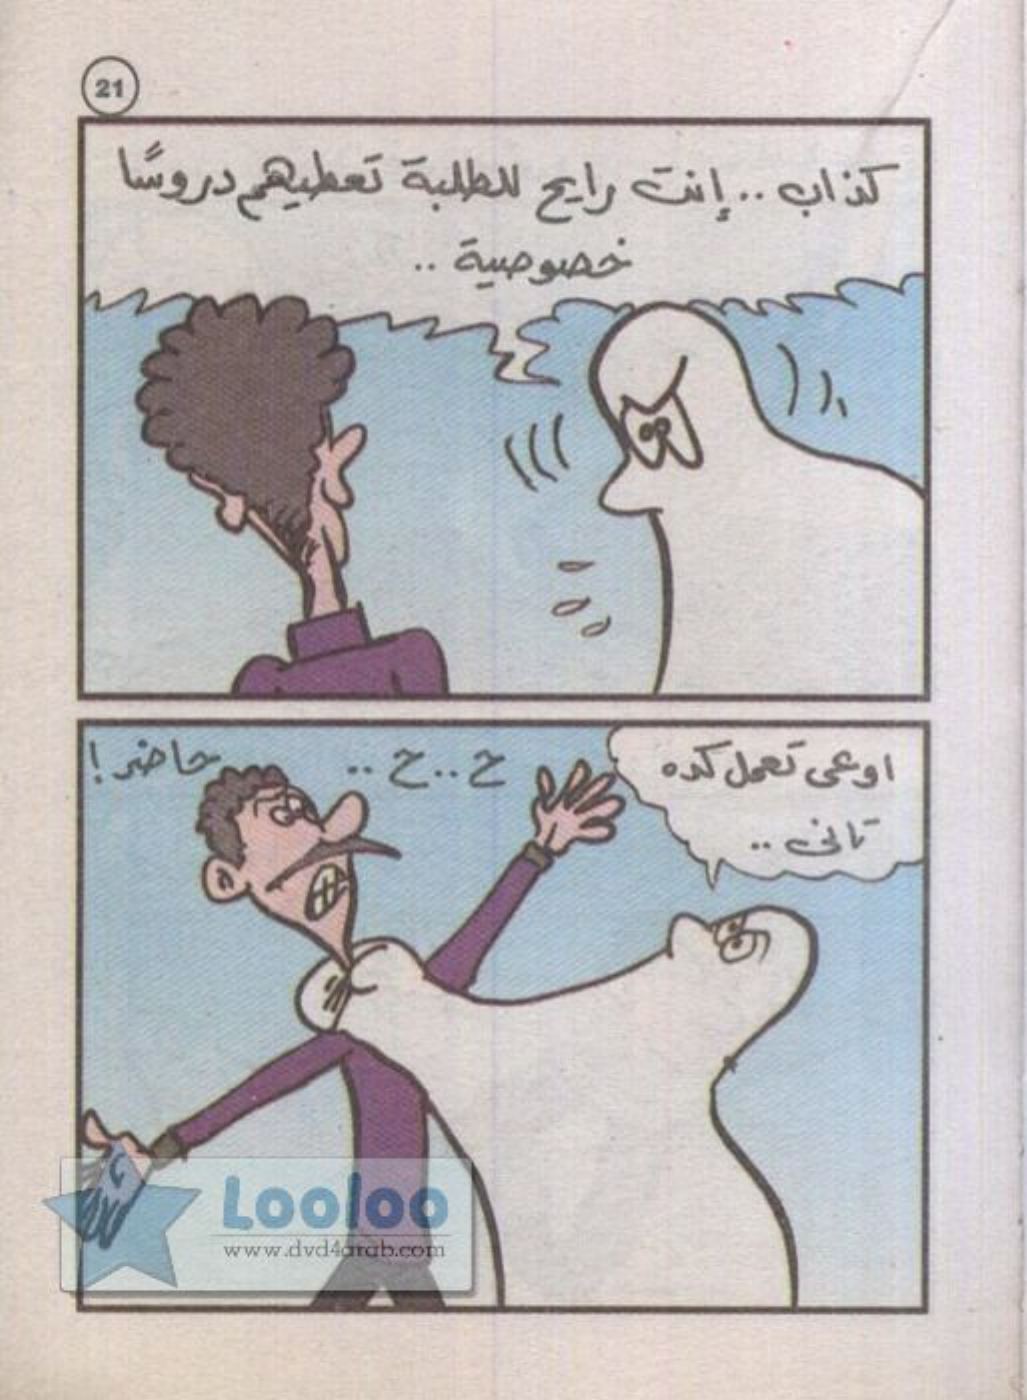 21
كذاب .. إنت رايح للطلبة تعطيهم دروسًا
خصوصية ..
اوعى تعمل كده
تانى ..
ح .. ح .. حاضر !
Looloo
www.dvd4arab.com